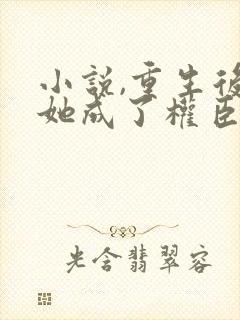 小說,重生後
她成了權臣
光含翡翠容